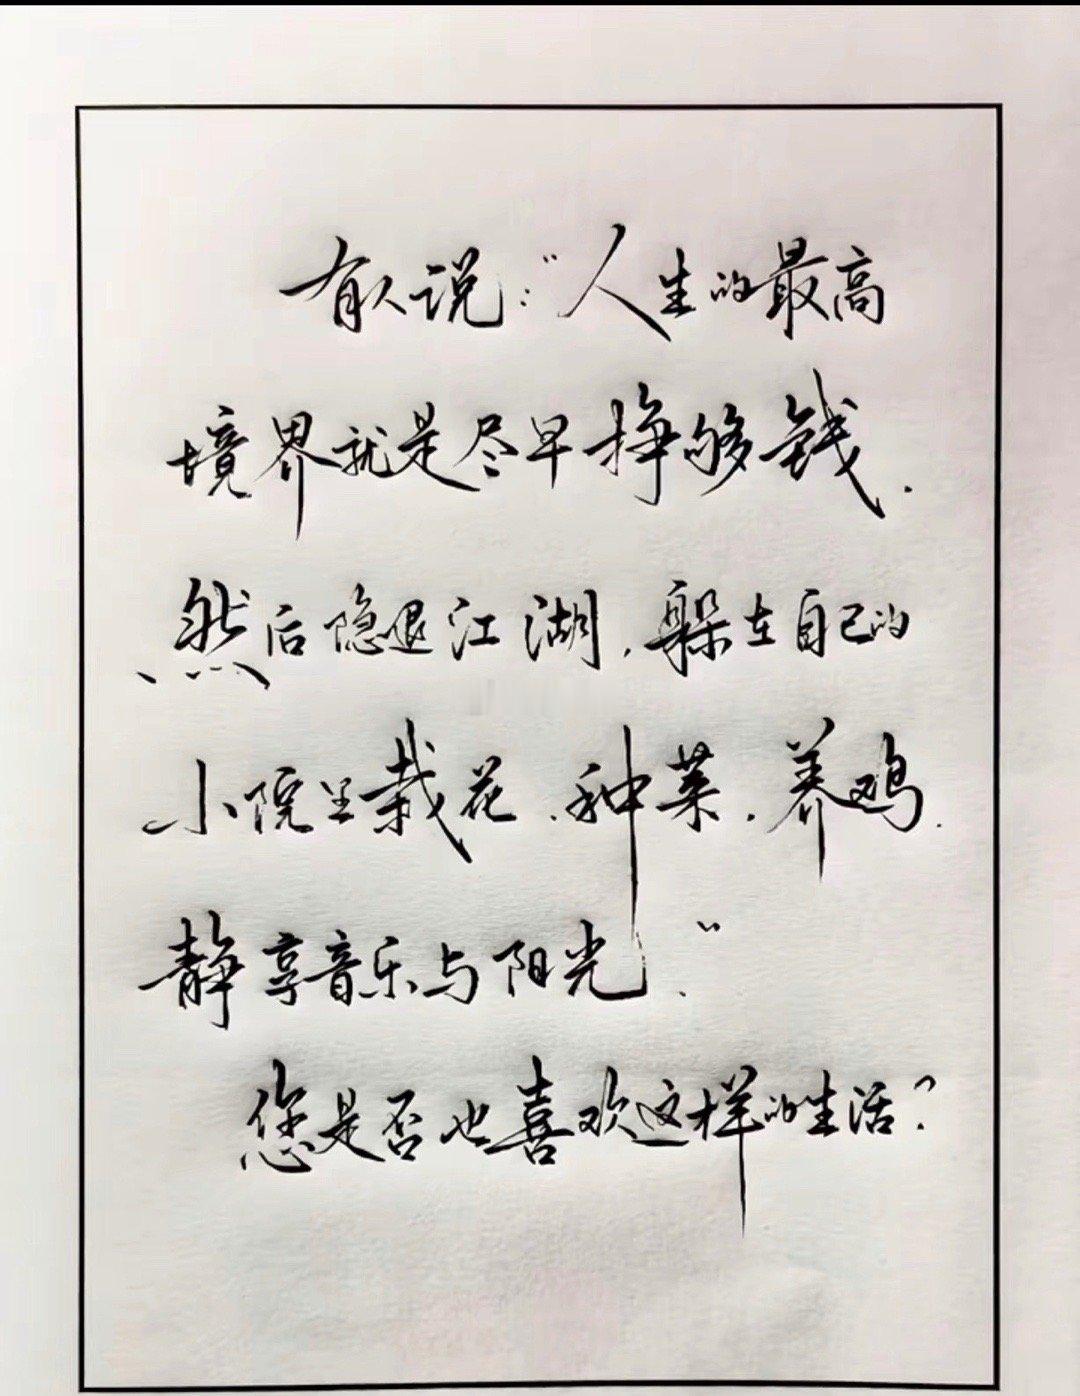 有人说：“人生的最高
境界就是尽早挣够钱，
然后隐退江湖，躲在自己的
小院里栽花、种菜、养鸡，
静享音乐与阳光。”
您是否也喜欢这样的生活？